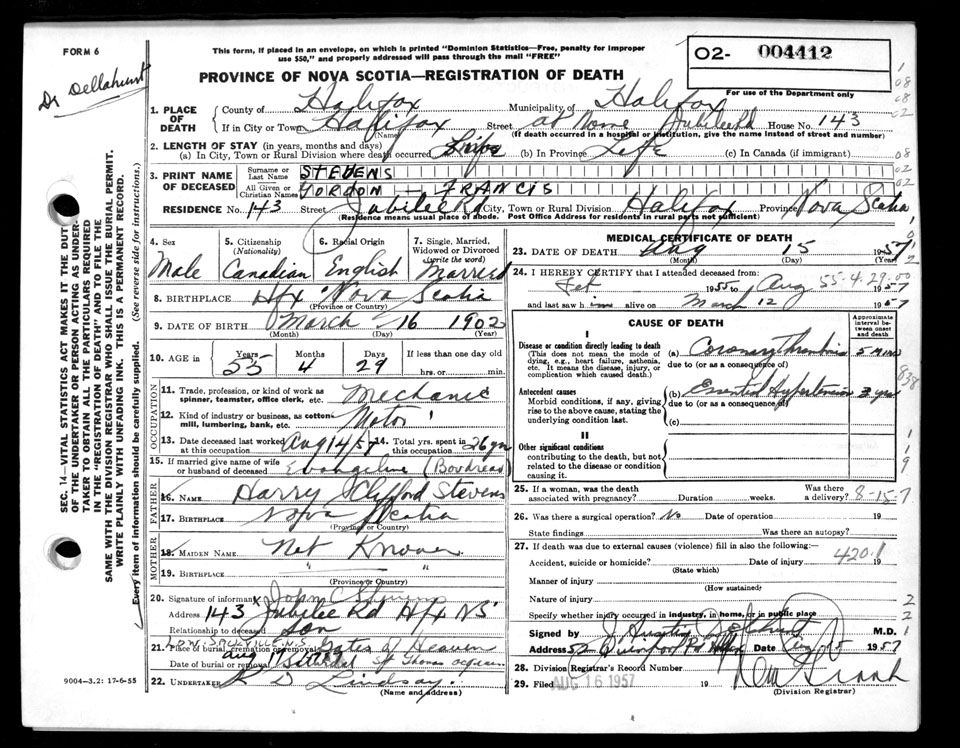 FORM 6
This form, if placed in an envelope, on which is printed "Dominion Statistics—Free, penalty for improper
use $50," and properly addressed will pass through the mail "FREE"
O2- 004412
For use of the Department only
Dr Dellahunt
PROVINCE OF NOVA SCOTIA—REGISTRATION OF DEATH
1. PLACE OF DEATH
County of Halifax Municipality of Halifax
If in City or Town Halifax Street at home Jubilee Rd House No. 143
(Name) (If death occurred in a hospital or institution, give the name instead of street and number)
2. LENGTH OF STAY (in years, months and days)
(a) In City, Town or Rural Division where death occurred Life (b) In Province Life (c) In Canada (if immigrant)
3. PRINT NAME OF DECEASED
Surname or Last Name STEVENS
All Given or Christian Names GORDON — FRANCIS
RESIDENCE No. 143 Street Jubilee Rd City, Town or Rural Division Halifax Province Nova Scotia
(Residence means usual place of abode. Post Office Address for residents in rural parts not sufficient)
4. Sex
Male
5. Citizenship (Nationality)
Canadian
6. Racial Origin
English
7. Single, Married, Widowed or Divorced (write the word)
Married
8. BIRTHPLACE Hfx Nova Scotia
(Province or Country)
9. DATE OF BIRTH March 16 1902
(Month) (Day) (Year)
10. AGE in Years Months Days If less than one day
55 4 29 hrs. or min.
OCCUPATION
11. Trade, profession, or kind of work as spinner, teamster, office clerk, etc. Mechanic
12. Kind of industry or business, as cotton mill, lumbering, bank, etc. Motor
13. Date deceased last worked at this occupation Aug 14/57
14. Total yrs. spent in this occupation 26 yrs
15. If married give name of wife or husband of deceased Evangeline (Boudreau)
FATHER
16. NAME Harry Clifford Stevens
17. BIRTHPLACE Nova Scotia
(Province or Country)
MOTHER
18. MAIDEN NAME Not Known
19. BIRTHPLACE " "
(Province or Country)
20. Signature of informant John C Stevens
Address 143 Jubilee Rd Hfx NS
Relationship to deceased Son
21. Place of burial, cremation or removal Low. Sackville N.S. Gates of Heaven
Date of burial or removal Aug 17 Saturday
22. UNDERTAKER R D Lindsay
(Name and address)
9004-3.2: 17-6-55
MEDICAL CERTIFICATE OF DEATH
23. DATE OF DEATH Aug 15 1957
(Month) (Day)
24. I HEREBY CERTIFY that I attended deceased from:
55-4-29-00
Feb 1955 to Aug 1957
and last saw him alive on March 12 1957
CAUSE OF DEATH
Approximate interval between onset and death
I
Disease or condition directly leading to death (a) Coronary thrombosis 5 mins
(This does not mean the mode of dying, e.g., heart failure, asthenia, etc. It means the disease, injury, or complication which caused death.)
due to (or as a consequence of)
Antecedent causes (b) Essential Hypertension 3 yrs
Morbid conditions, if any, giving rise to the above cause, stating the underlying condition last.
due to (or as a consequence of)
(c)
II
Other significant conditions
contributing to the death, but not related to the disease or condition causing it.
25. If a woman, was the death associated with pregnancy? Duration weeks. Was there a delivery? 8-15-7
26. Was there a surgical operation? No Date of operation 19
State findings Was there an autopsy?
27. If death was due to external causes (violence) fill in also the following:—
Accident, suicide or homicide? Date of injury 19
420.1
(State which)
Manner of injury
(How sustained)
Nature of injury
Specify whether injury occurred in industry, in home, or in public place
Signed by M.D.
Address 52 Quinpool Rd Hfx Date Aug 15 1957
28. Division Registrar's Record Number
29. Filed AUG 16 1957 19
(Division Registrar)
SEC. 14—VITAL STATISTICS ACT MAKES IT THE DUTY
OF THE UNDERTAKER OR PERSON ACTING AS UNDER-
TAKER TO OBTAIN ALL THE PARTICULARS REQUIRED
IN THE "REGISTRATION OF DEATH" AND TO FILE THE
SAME WITH THE DIVISION REGISTRAR WHO SHALL ISSUE THE BURIAL PERMIT.
WRITE PLAINLY WITH UNFADING INK. THIS IS A PERMANENT RECORD.
Every item of information should be carefully supplied. (See reverse side for instructions.)